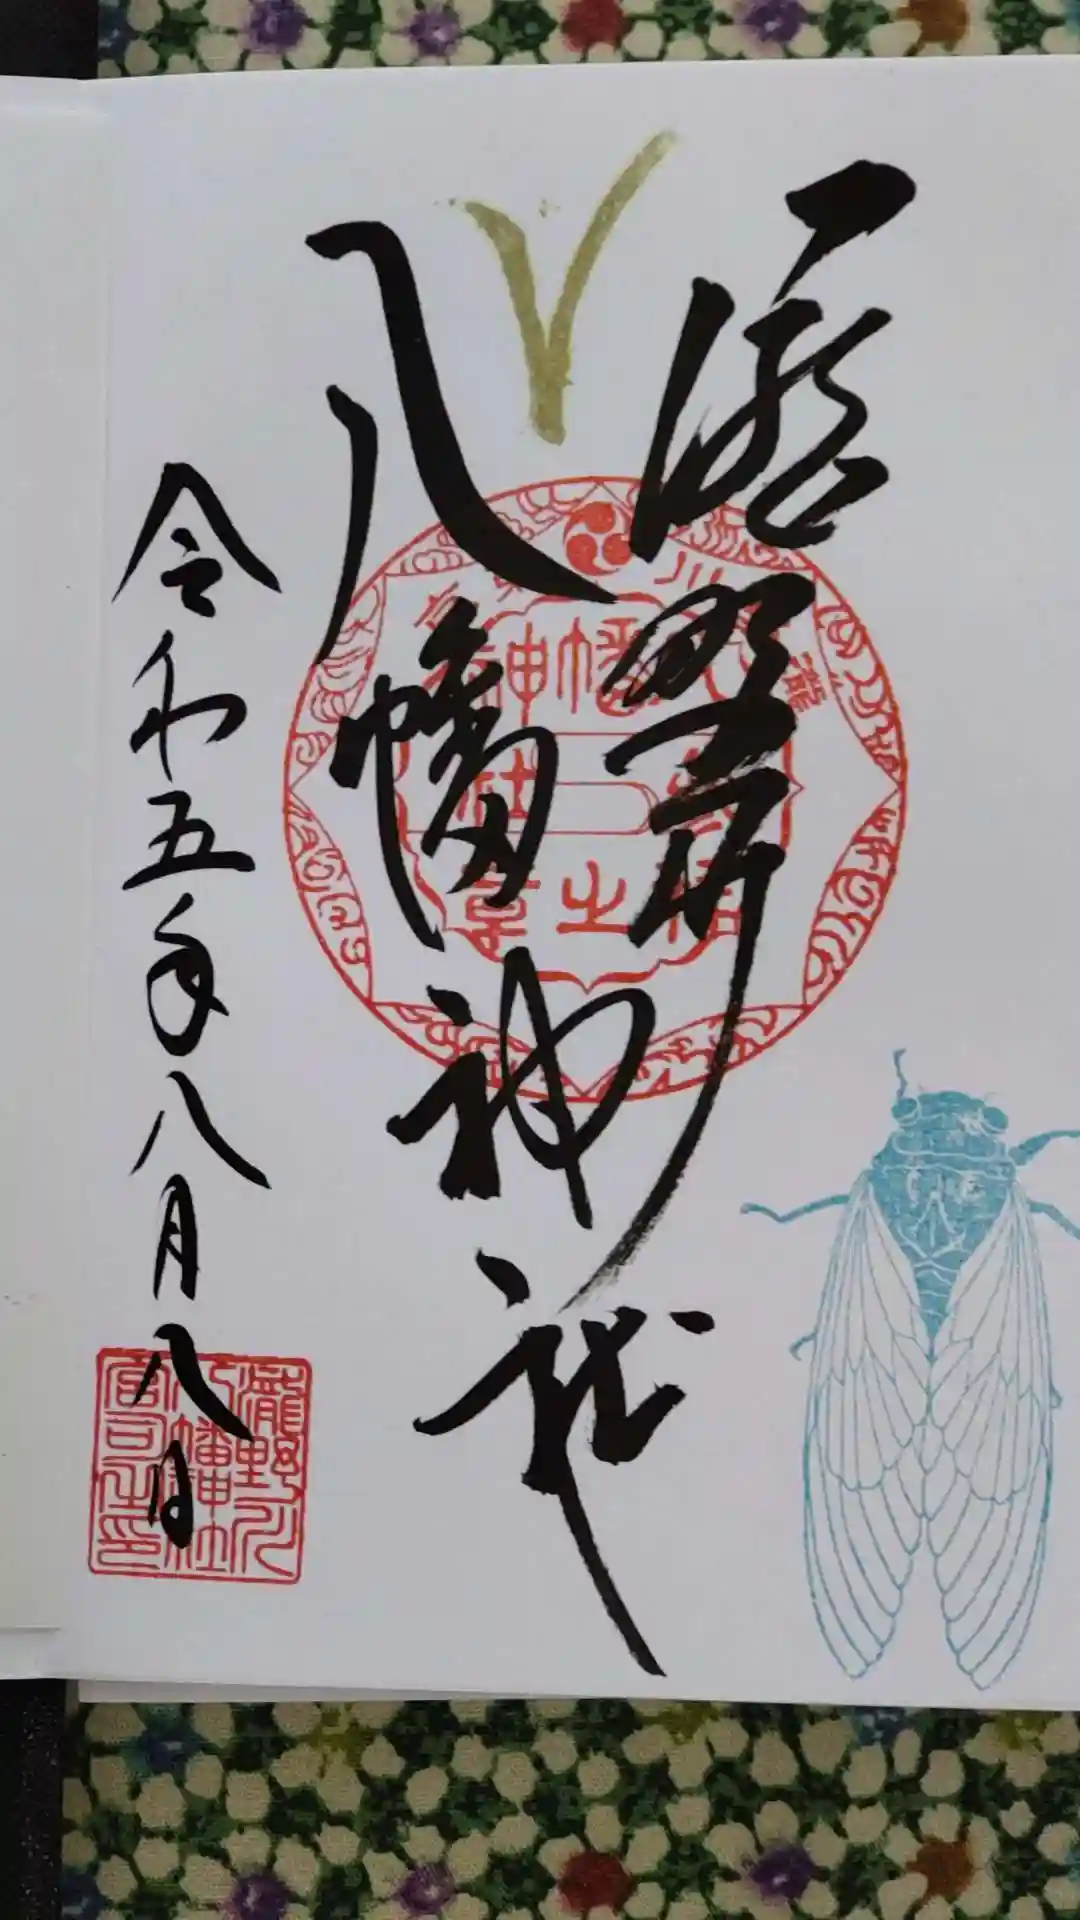 瀧野川
八幡神社
令和五年八月八日
瀧野川
八幡神社
宮司之印